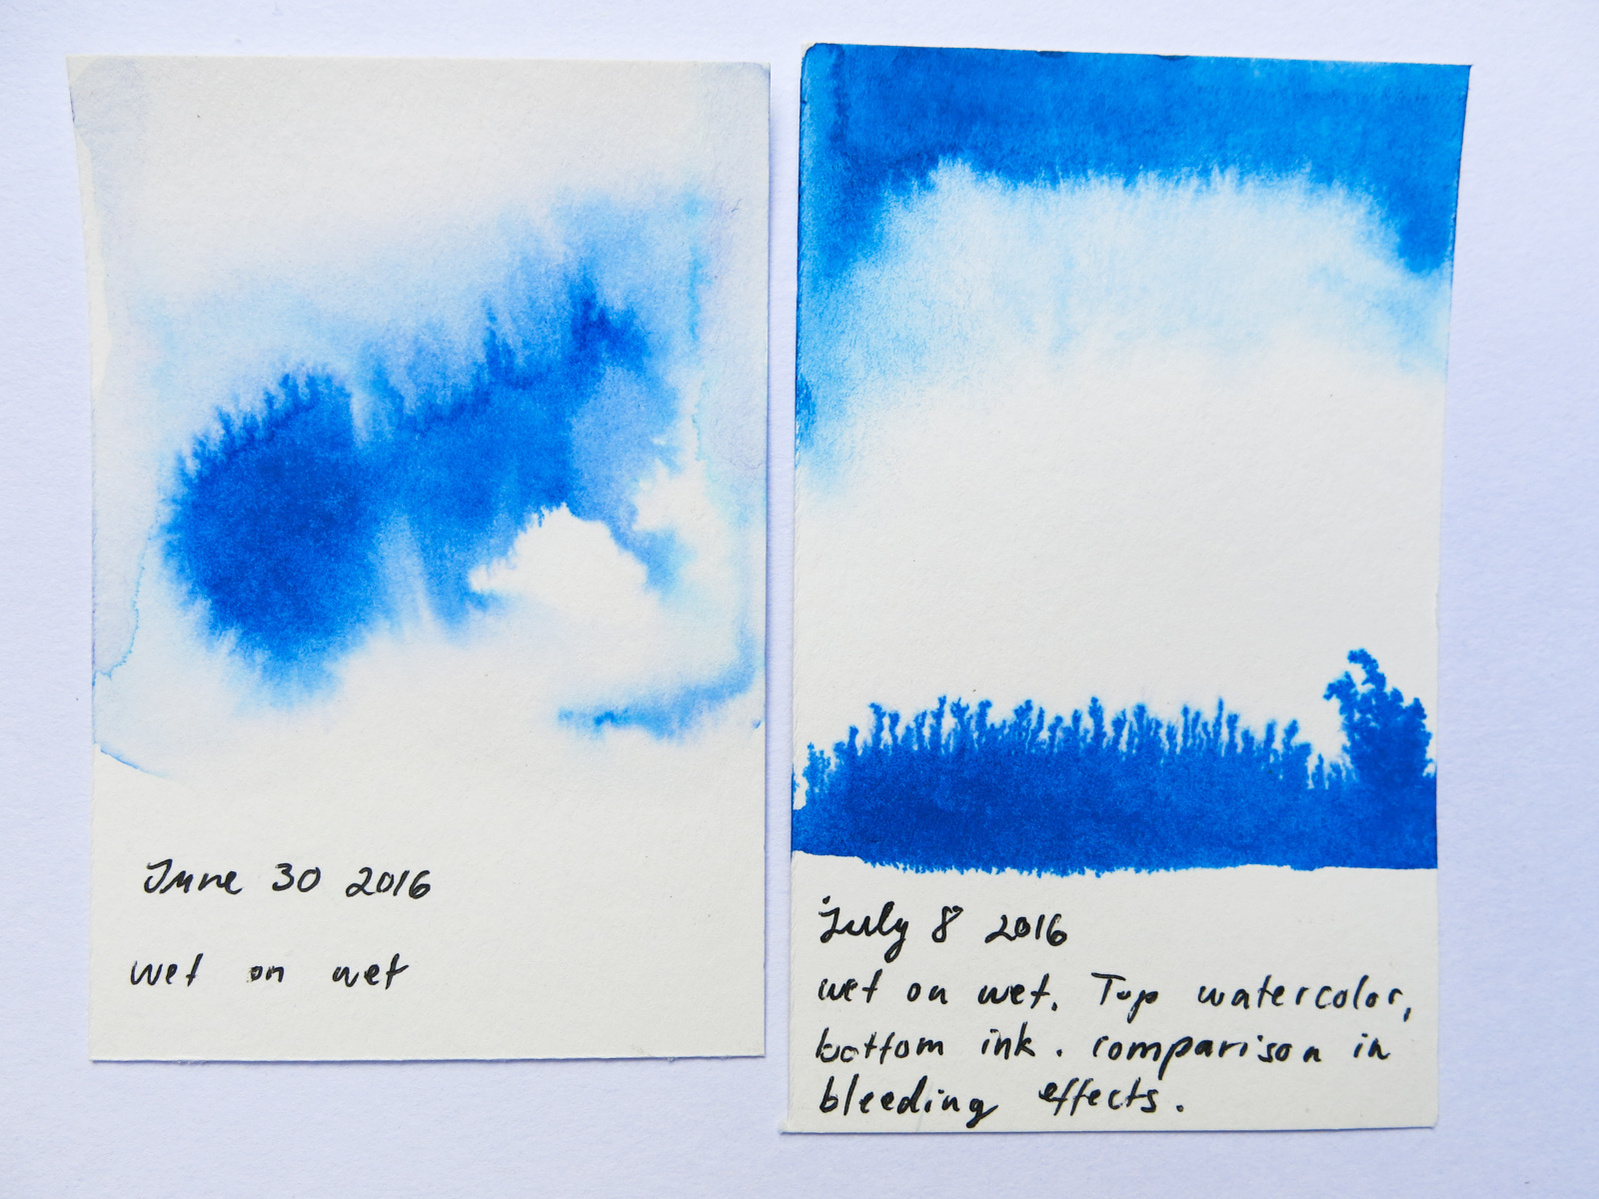 June 30 2016
wet on wet
July 8 2016
wet on wet. Top watercolor,
bottom ink. comparison in
bleeding effects.